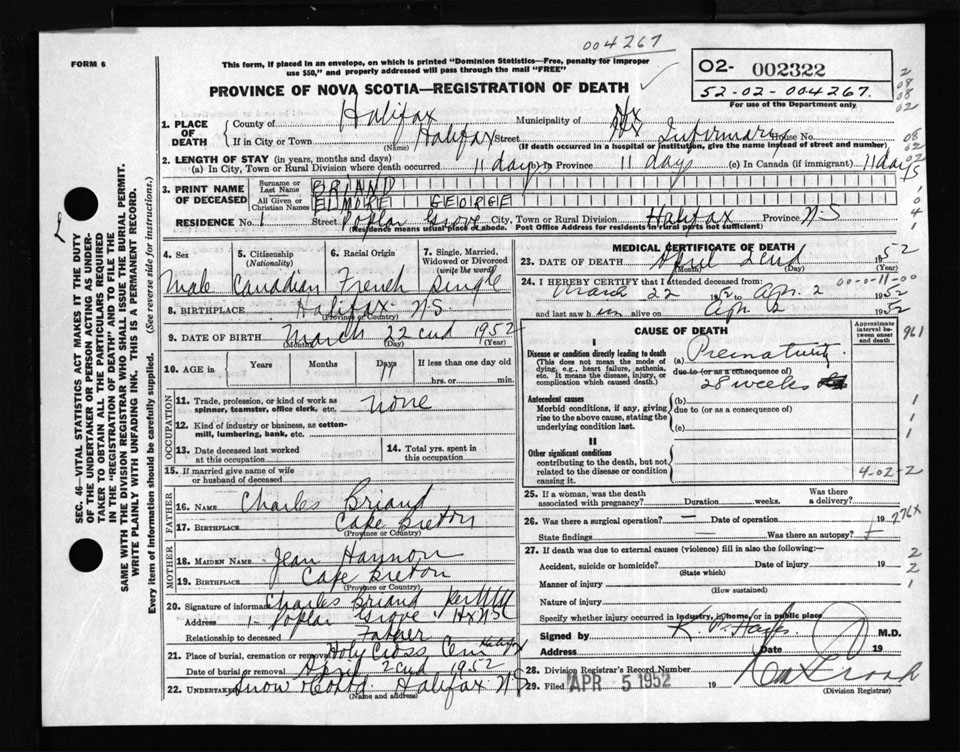 004267
FORM 6
This form, if placed in an envelope, on which is printed "Dominion Statistics—Free, penalty for improper
use $50," and properly addressed will pass through the mail "FREE"
O2- 002322
52-02-004267.
For use of the Department only
PROVINCE OF NOVA SCOTIA—REGISTRATION OF DEATH
1. PLACE OF DEATH { County of Halifax Municipality of Hx
If in City or Town Halifax Street Hx Infirmary House No.
(Name) (If death occurred in a hospital or institution, give the name instead of street and number)
2. LENGTH OF STAY (in years, months and days)
(a) In City, Town or Rural Division where death occurred 11 days In Province 11 days (c) In Canada (if immigrant) 11 days
3. PRINT NAME OF DECEASED { Surname or Last Name BRIAND
All Given or Christian Names ELMORE GEORGE
RESIDENCE No. 1 Street Poplar Grove City, Town or Rural Division Halifax Province N-S
(Residence means usual place of abode. Post Office Address for residents in rural parts not sufficient)
4. Sex 5. Citizenship (Nationality) 6. Racial Origin 7. Single, Married, Widowed or Divorced (write the word)
Male Canadian French Single
8. BIRTHPLACE Halifax N.S.
(Province or Country)
9. DATE OF BIRTH March 22cnd 1952
(Month) (Day) (Year)
10. AGE in { Years Months Days If less than one day old
11 hrs. or min.
OCCUPATION
11. Trade, profession, or kind of work as spinner, teamster, office clerk, etc. none
12. Kind of industry or business, as cotton-mill, lumbering, bank, etc.
13. Date deceased last worked at this occupation 14. Total yrs. spent in this occupation
15. If married give name of wife or husband of deceased
FATHER
16. NAME Charles Briand
17. BIRTHPLACE Cape Breton
(Province or Country)
MOTHER
18. MAIDEN NAME Jean Hannon
19. BIRTHPLACE Cape Breton
(Province or Country)
20. Signature of informant Charles Briand
Address 1- Poplar Grove Hx N.S.
Relationship to deceased Father
21. Place of burial, cremation or removal Holy Cross Cem Halifax
Date of burial or removal April 2cnd 1952
22. Undertaker Snow Halifax N.S
(Name and address)
MEDICAL CERTIFICATE OF DEATH
23. DATE OF DEATH April 2cnd 1952
(Month) (Day) (Year)
24. I HEREBY CERTIFY that I attended deceased from: 00-0-11-00
March 22 1952 to Apr. 2 1952
and last saw him alive on Apr. 2 1952
CAUSE OF DEATH
Approximate interval between onset and death
961
I
Disease or condition directly leading to death
(This does not mean the mode of dying, e.g., heart failure, asthenia, etc. It means the disease, injury, or complication which caused death.)
(a) Prematurity
due to (or as a consequence of)
28 weeks
Antecedent causes
Morbid conditions, if any, giving rise to the above cause, stating the underlying condition last.
(b)
due to (or as a consequence of)
(c)
II
Other significant conditions
contributing to the death, but not related to the disease or condition causing it.
4-02-2
25. If a woman, was the death associated with pregnancy? Duration weeks. Was there a delivery?
26. Was there a surgical operation? — Date of operation 19 776X
State findings Was there an autopsy?
27. If death was due to external causes (violence) fill in also the following:—
Accident, suicide or homicide? Date of injury 19
(State which)
Manner of injury
(How sustained)
Nature of injury
Specify whether injury occurred in industry, in home, or in public place
Signed by M.D.
Address Date 19
28. Division Registrar's Record Number
29. Filed APR 5 1952 19
(Division Registrar)
SEC. 46—VITAL STATISTICS ACT MAKES IT THE DUTY
OF THE UNDERTAKER OR PERSON ACTING AS UNDER-
TAKER TO OBTAIN ALL THE PARTICULARS REQUIRED
IN THE "REGISTRATION OF DEATH" AND TO FILE THE
SAME WITH THE DIVISION REGISTRAR WHO SHALL ISSUE THE BURIAL PERMIT.
WRITE PLAINLY WITH UNFADING INK. THIS IS A PERMANENT RECORD.
Every item of information should be carefully supplied. (See reverse side for instructions.)